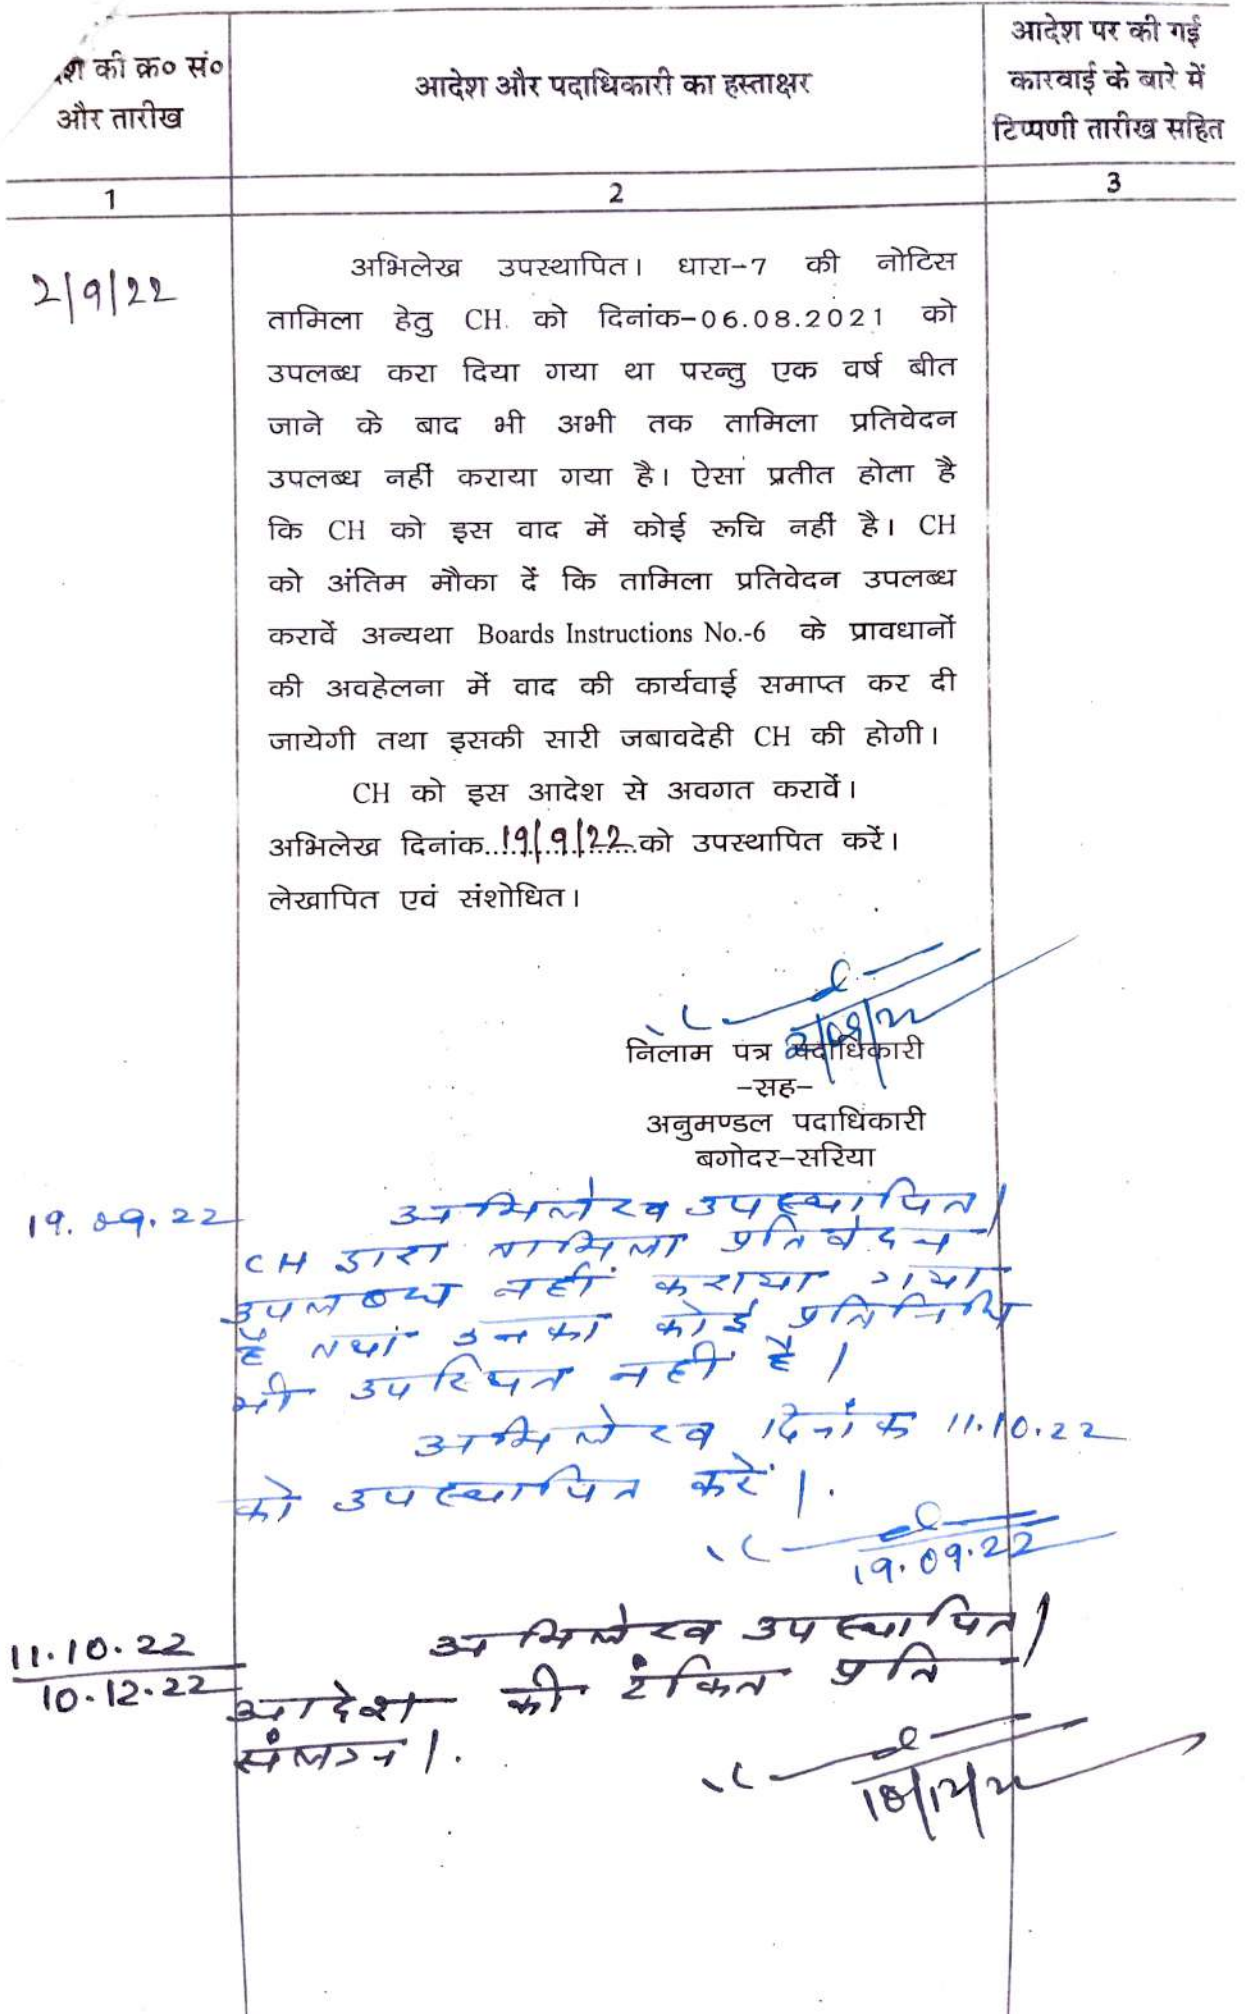 की क्र० सं०
और तारीख
आदेश और पदाधिकारी का हस्ताक्षर
आदेश पर की गई
कारवाई के बारे में
टिप्पणी तारीख सहित
1
2
3
2/9/22
अभिलेख उपस्थापित। धारा-7 की नोटिस
तामिला हेतु CH को दिनांक-06.08.2021 को
उपलब्ध करा दिया गया था परन्तु एक वर्ष बीत
जाने के बाद भी अभी तक तामिला प्रतिवेदन
उपलब्ध नहीं कराया गया है। ऐसा प्रतीत होता है
कि CH को इस वाद में कोई रूचि नहीं है। CH
को अंतिम मौका दें कि तामिला प्रतिवेदन उपलब्ध
करावें अन्यथा Boards Instructions No.-6 के प्रावधानों
की अवहेलना में वाद की कार्यवाई समाप्त कर दी
जायेगी तथा इसकी सारी जबावदेही CH की होगी।
CH को इस आदेश से अवगत करावें।
अभिलेख दिनांक..19/9/22..को उपस्थापित करें।
लेखापित एवं संशोधित।
2/09/22
निलाम पत्र पदाधिकारी
-सह-
अनुमण्डल पदाधिकारी
बगोदर-सरिया
19.09.22
अभिलेख उपस्थापित।
CH द्वारा तामिला प्रतिवेदन
उपलब्ध नहीं कराया गया
है तथा उनका कोई प्रतिनिधि
भी उपस्थित नहीं है।
अभिलेख दिनांक 11.10.22
को उपस्थापित करें।
19.09.22
11.10.22
10.12.22
अभिलेख उपस्थापित।
आदेश की टंकित प्रति
संलग्न।